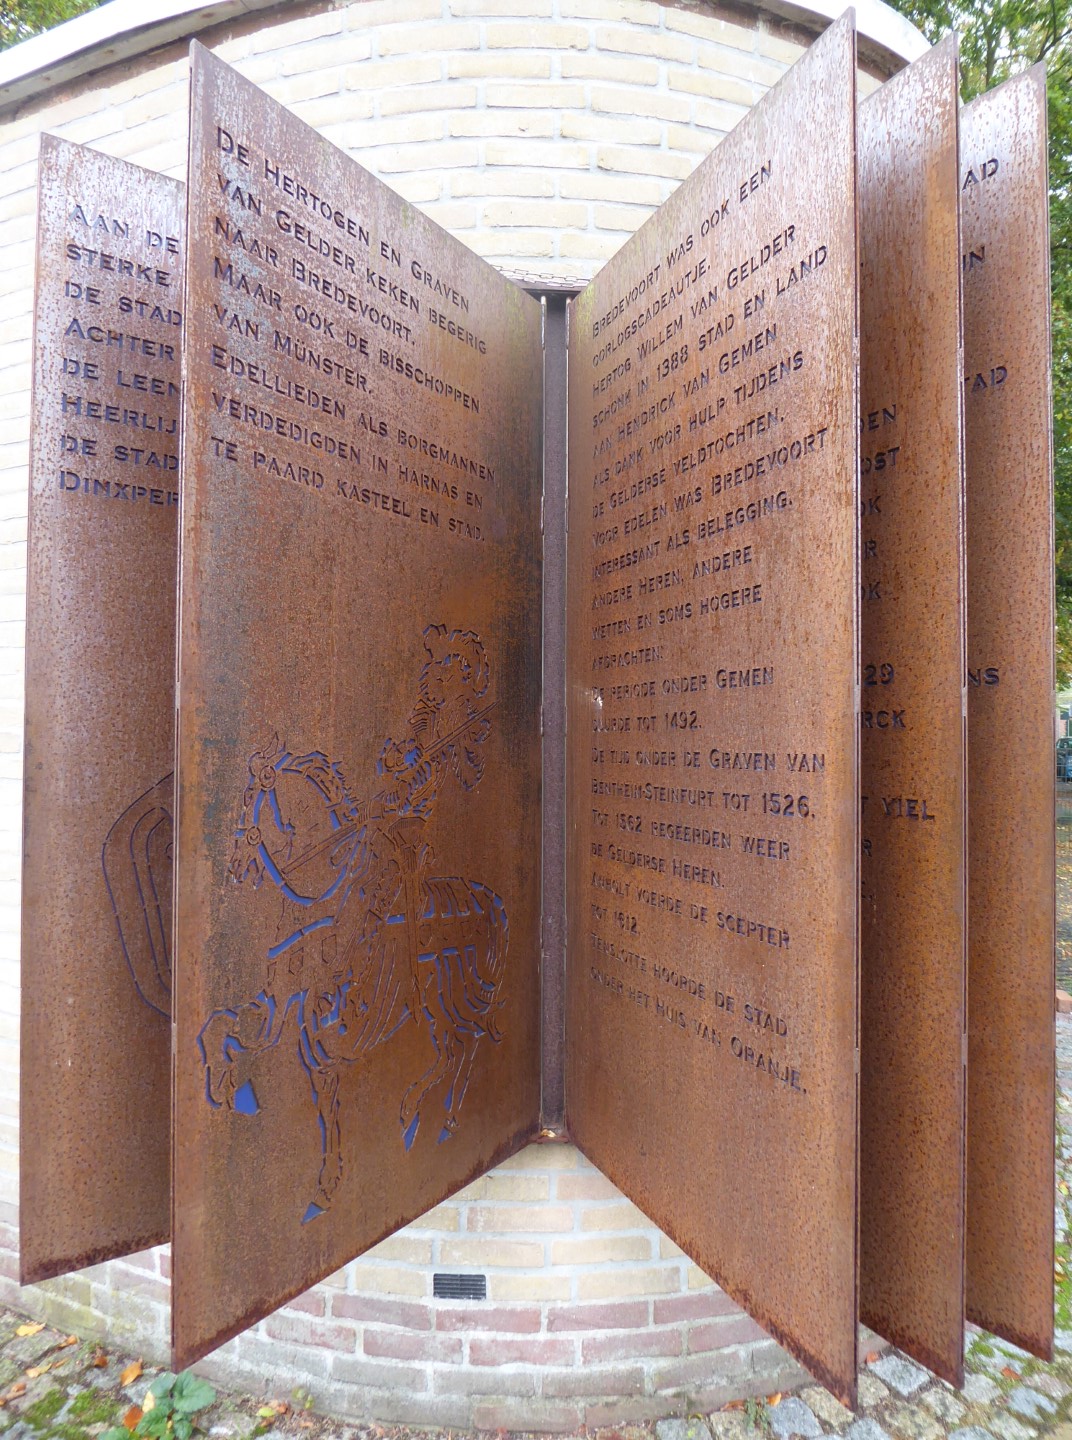 Aan de
sterke
de stad
Achter
de leen
Heerlij
de stad
Dinxper
De Hertogen en Graven
van Gelder keken begerig
naar Bredevoort.
Maar ook de bisschoppen
van Münster.
Edellieden als borgmannen
verdedigden in harnas en
te paard kasteel en stad.
Bredevoort was ook een
oorlogscadeautje.
Hertog Willem van Gelder
schonk in 1388 stad en land
aan Hendrick van Gemen
als dank voor hulp tijdens
de Gelderse veldtochten.
Voor edelen was Bredevoort
interessant als belegging.
Andere heren, andere
wetten en soms hogere
afdrachten.
De periode onder Gemen
duurde tot 1492.
De tijd onder de Graven van
Bentheim-Steinfurt tot 1526.
Tot 1562 regeerden weer
de Gelderse Heren.
Anholt voerde de scepter
tot 1612.
Tenslotte hoorde de stad
onder het Huis van Oranje.
den
ost
ok
er
ok
29
rck
t viel
r
ad
in
tad
ns